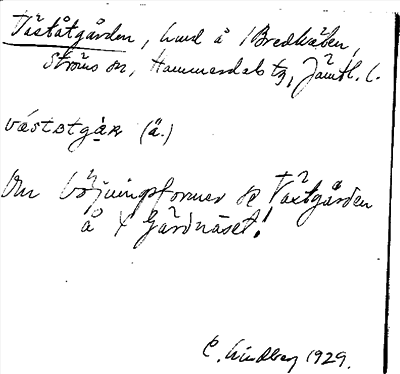 Väståtgården, hmd å Bredkälen,
Ströms sn, Hammerdals tg, Jämtl. l.
västatgàɳ (ä.)
Om böjningsformer se Västgården
å Gärdnäset!
C. Lindberg 1929.